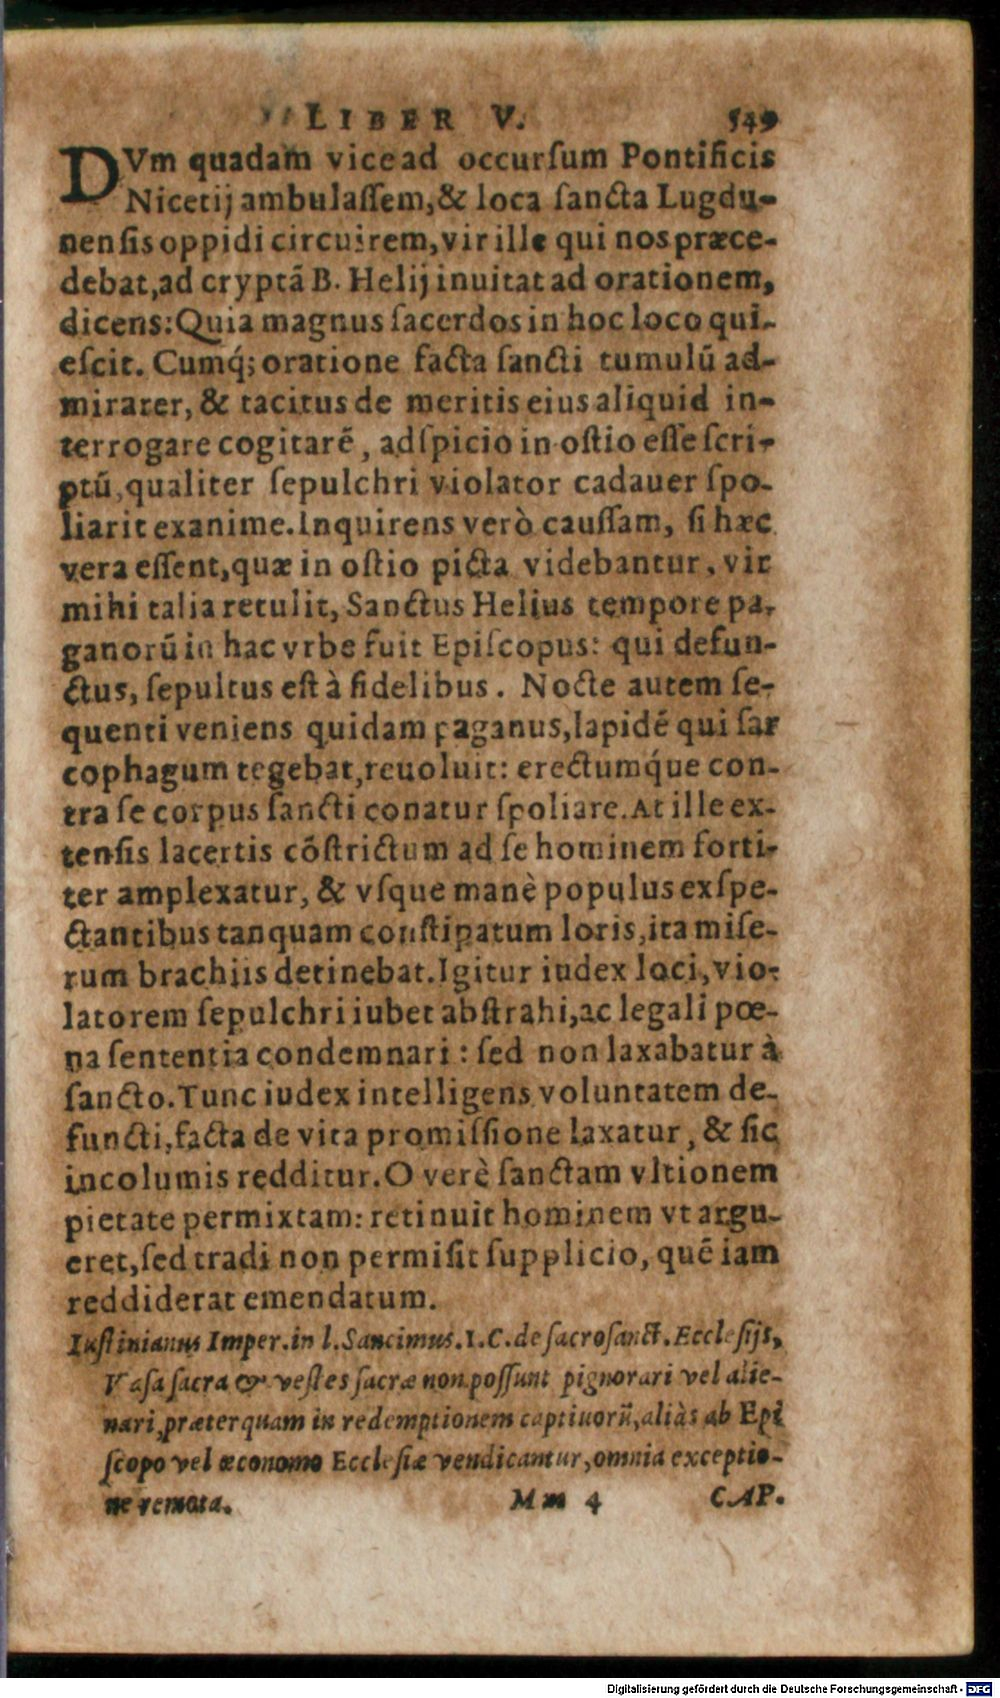 LIBER V. 549
DVm quadam vice ad occurſum Pontificis
Nicetij ambulaſſem,& loca ſancta Lugdu-
nenſis oppidi circuirem,vir ille qui nos præce-
debat,ad cryptã B. Helij inuitat ad orationem,
dicens:Quia magnus ſacerdos in hoc loco qui-
eſcit. Cumq́; oratione facta ſancti tumulũ ad-
mirarer, & tacitus de meritis eius aliquid in-
terrogare cogitarẽ, adſpicio in oſtio eſſe ſcri-
ptũ,qualiter ſepulchri violator cadauer ſpo-
liarit exanime.Inquirens verò cauſſam, ſi hæc
vera eſſent,quæ in oſtio picta videbantur, vir
mihi talia retulit, Sanctus Helius tempore pa-
ganorũ in hac vrbe fuit Epiſcopus: qui defun-
ctus, ſepultus eſt à fidelibus. Nocte autem ſe-
quenti veniens quidam paganus,lapidẽ qui ſar
cophagum tegebat,reuoluit: erectumq́ue con-
tra ſe corpus ſancti conatur ſpoliare.At ille ex-
tenſis lacertis cõſtrictum ad ſe hominem forti-
ter amplexatur, & vſque manè populus exſpe-
ctantibus tanquam conſtipatum loris,ita miſe-
rum brachiis detinebat.Igitur iudex loci,vio-
latorem ſepulchri iubet abſtrahi,ac legali pœ-
na ſententia condemnari : ſed non laxabatur à
ſancto.Tunc iudex intelligens voluntatem de-
functi,facta de vita promiſſione laxatur, & ſic
incolumis redditur.O verè ſanctam vltionem
pietate permixtam: retinuit hominem vt argu-
eret,ſed tradi non permiſit ſupplicio, quẽ iam
reddiderat emendatum.
Iuſtinianus Imper.in l.Sancimus.I.C.de ſacroſanct.Eccleſijs,
Vaſa ſacra & veſtes ſacræ non poſſunt pignorari vel alie-
nari,præterquam in redemptionem captiuorũ,aliàs ab Epi
ſcopo vel œconomo Eccleſiæ vendicantur,omnia exceptio-
ne remota. Mm 4 CAP.
Digitalisierung gefördert durch die Deutsche Forschungsgemeinschaft - DFG